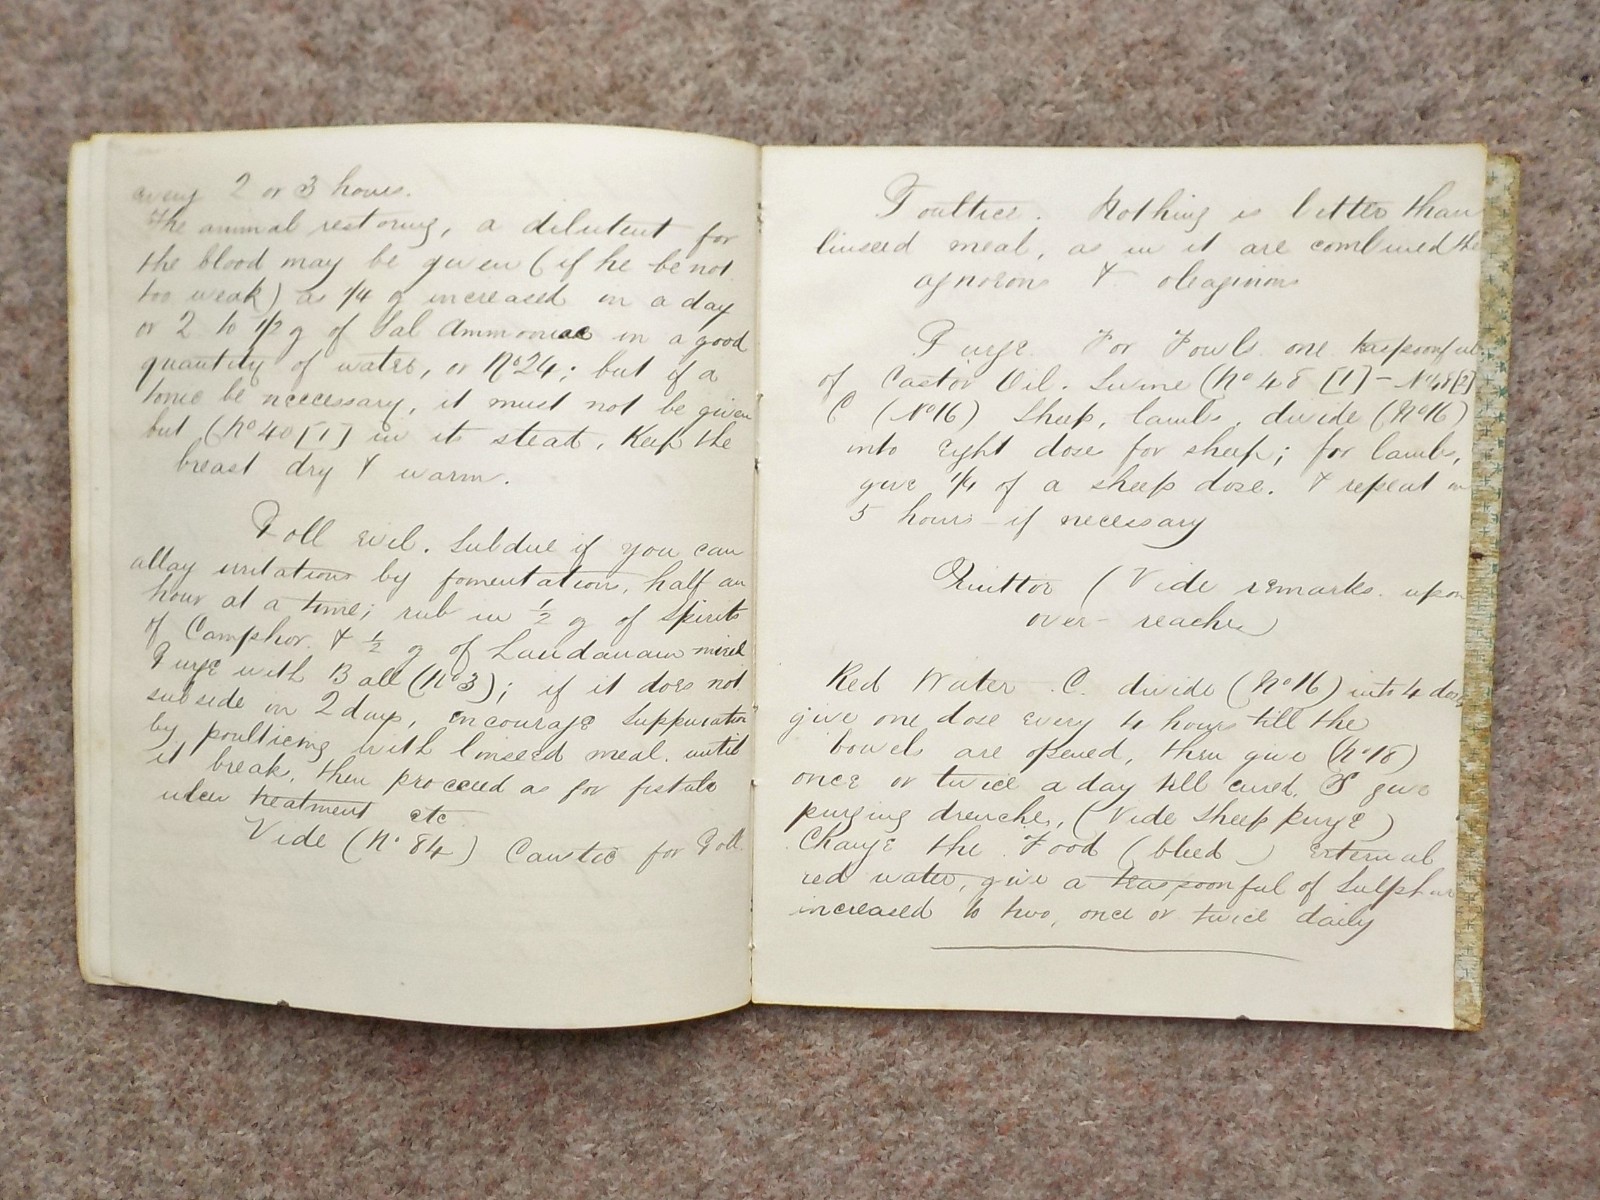 every 2 or 3 hours.
The animal restoring, a dilutent for
the blood may be given (if he be not
too weak) as 1/4 g increased in a day
or 2 to 1/2 g of Sal Ammoniac in a good
quantity of water, or No 24; but if a
tonic be neccessary, it must not be given
but (No 40 [1] in its stead. Keep the
breast dry & warm.
Poll evil. Subdue if you can
allay irritations by fomentation, half an
hour at a time; rub in 1/2 g of Spirits
of Camphor & 1/2 g of Laudanam mixed
Purge with Ball (No 3); if it does not
subside in 2 days, encourage Suppuration
by poulticing with linseed meal. until
it break, then proceed as for fistula
ulcer treatment etc
Vide (No 84) Caustic for Poll
Poultice. Nothing is better than
linseed meal, as in it are combined the
&
Purge. For Fowls one teaspoonful
of Castor Oil. Swine (No 48 [1] - No 48 [2]
C (No 16) Sheep, lambs, divide (No 16)
into eight dose for sheep; for lambs,
give 1/4 of a sheep dose. & repeat in
5 hours if necessary
Quittor (Vide remarks upon
over-reache)
Red Water C. divide (No 16) into 4 doses
give one dose every 4 hours till the
bowels are opened, then give (No 18)
once or twice a day till cured. S give
purging drenche, (Vide Sheep purge)
Change the Food (bleed) External
red water, give a teaspoonful of Sulphur
increased to two, once or twice daily